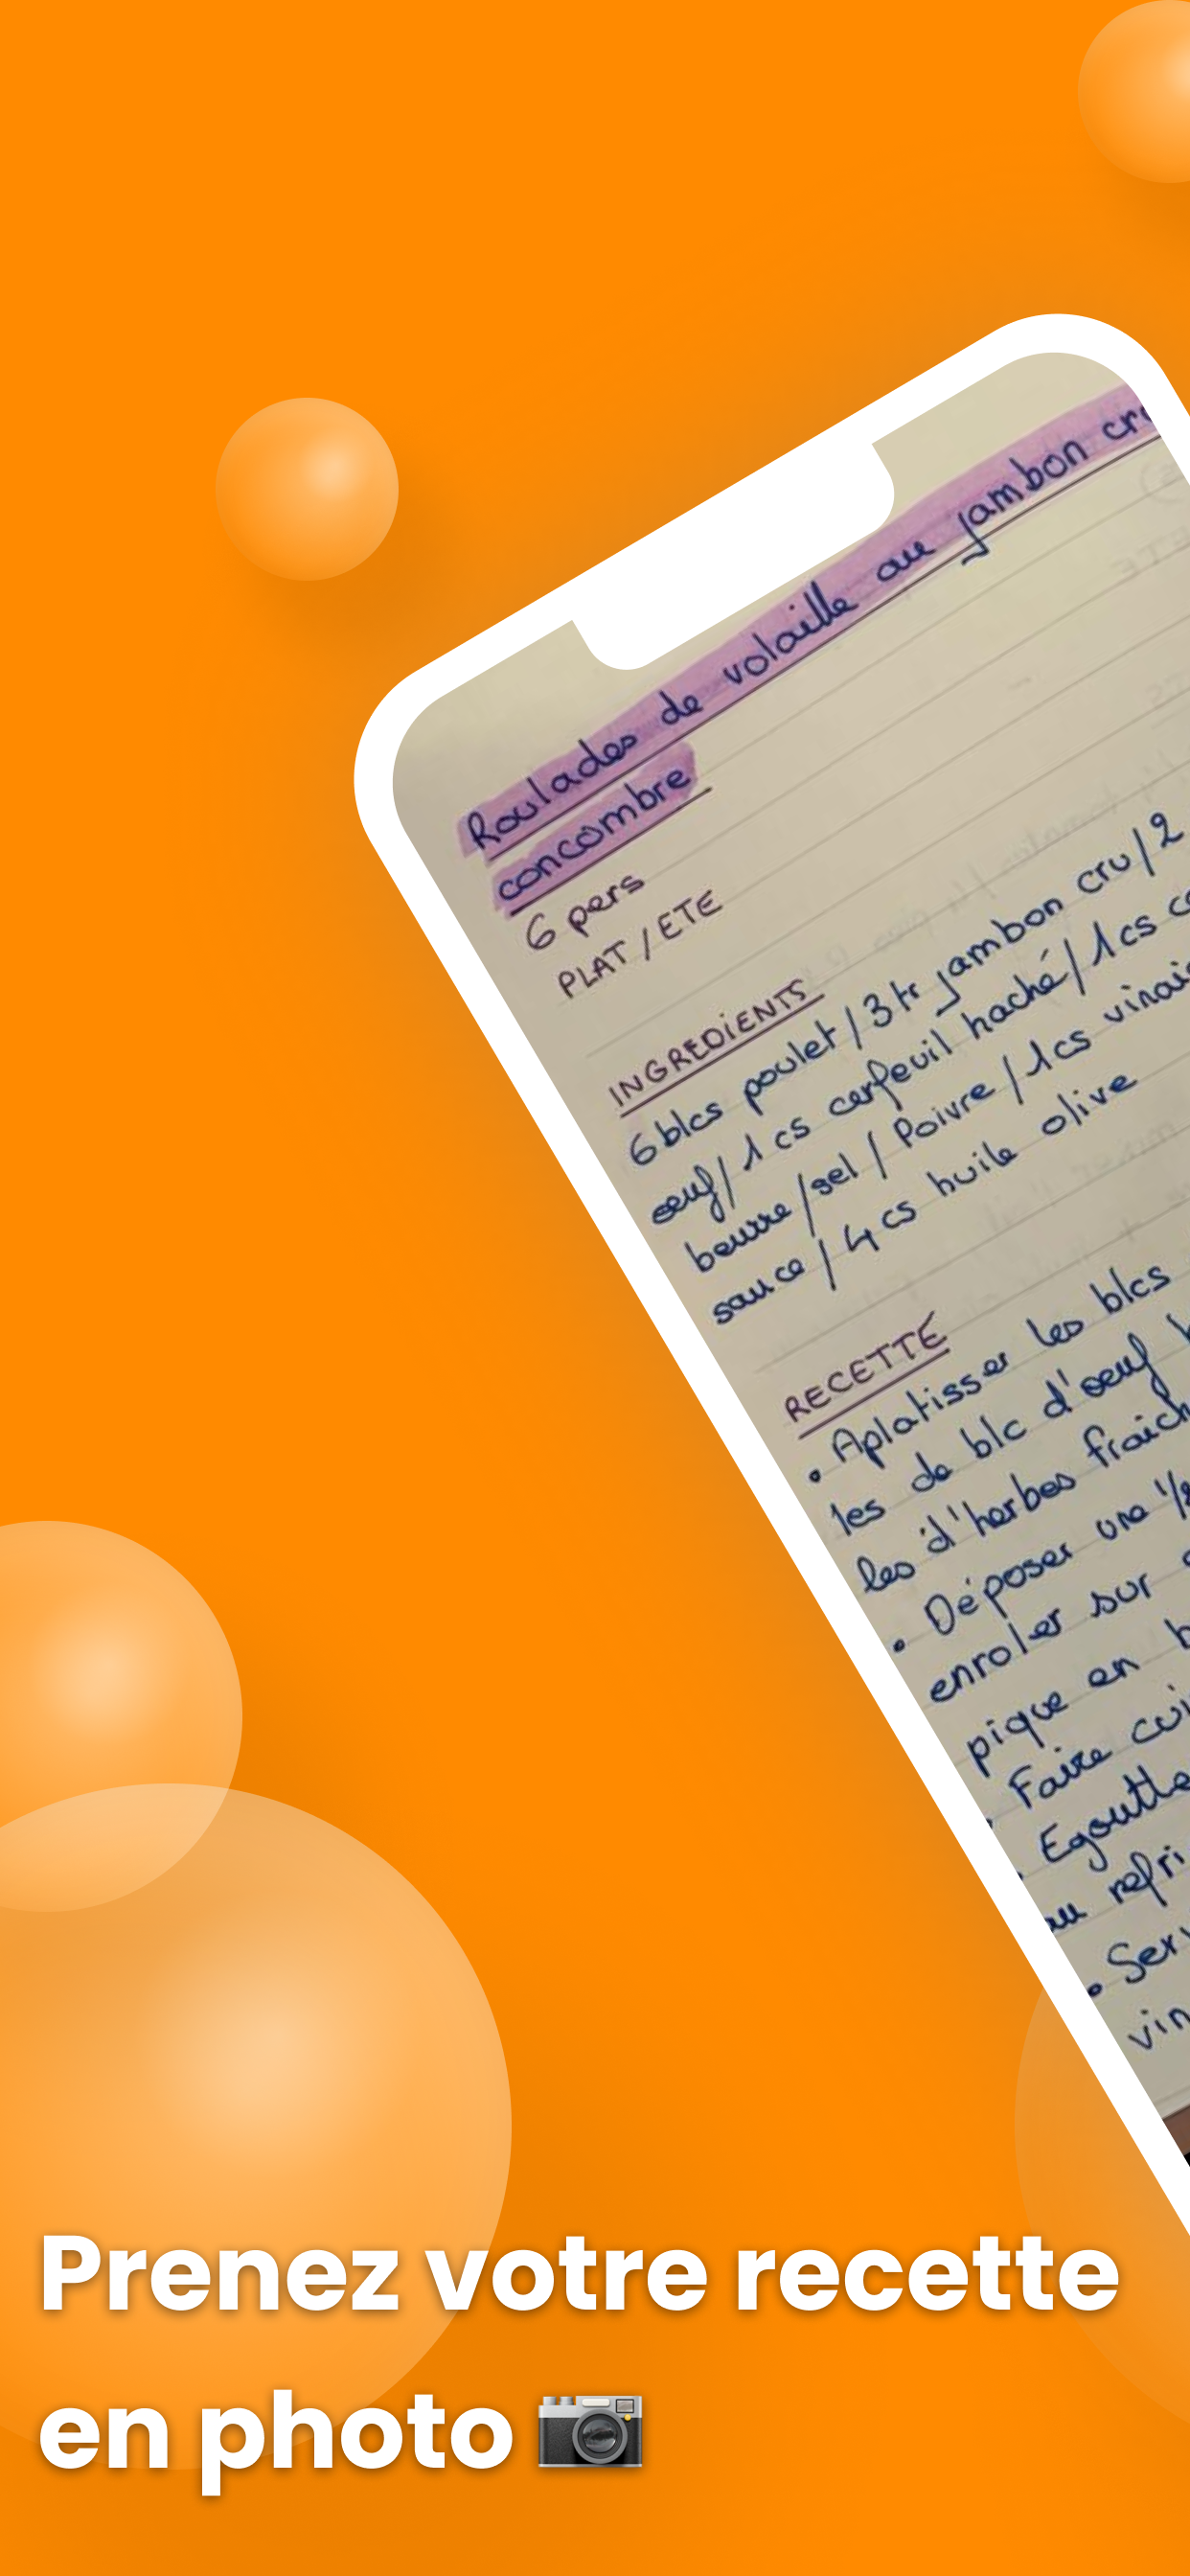 Roulades de volaille au jambon
concombre
6 pers
PLAT / ETE
INGREDIENTS
6 blcs poulet / 3 tr jambon cru / 2
oeuf / 1 cs cerfeuil haché / 1 cs
beurre / sel / Poivre / 1 cs
sauce / 4 cs huile olive
RECETTE
• Aplatisser les blcs
les de blc d'oeuf
les d'herbes
• Déposer une
enroler sur
pique en
Faire
au
Prenez votre recette
en photo